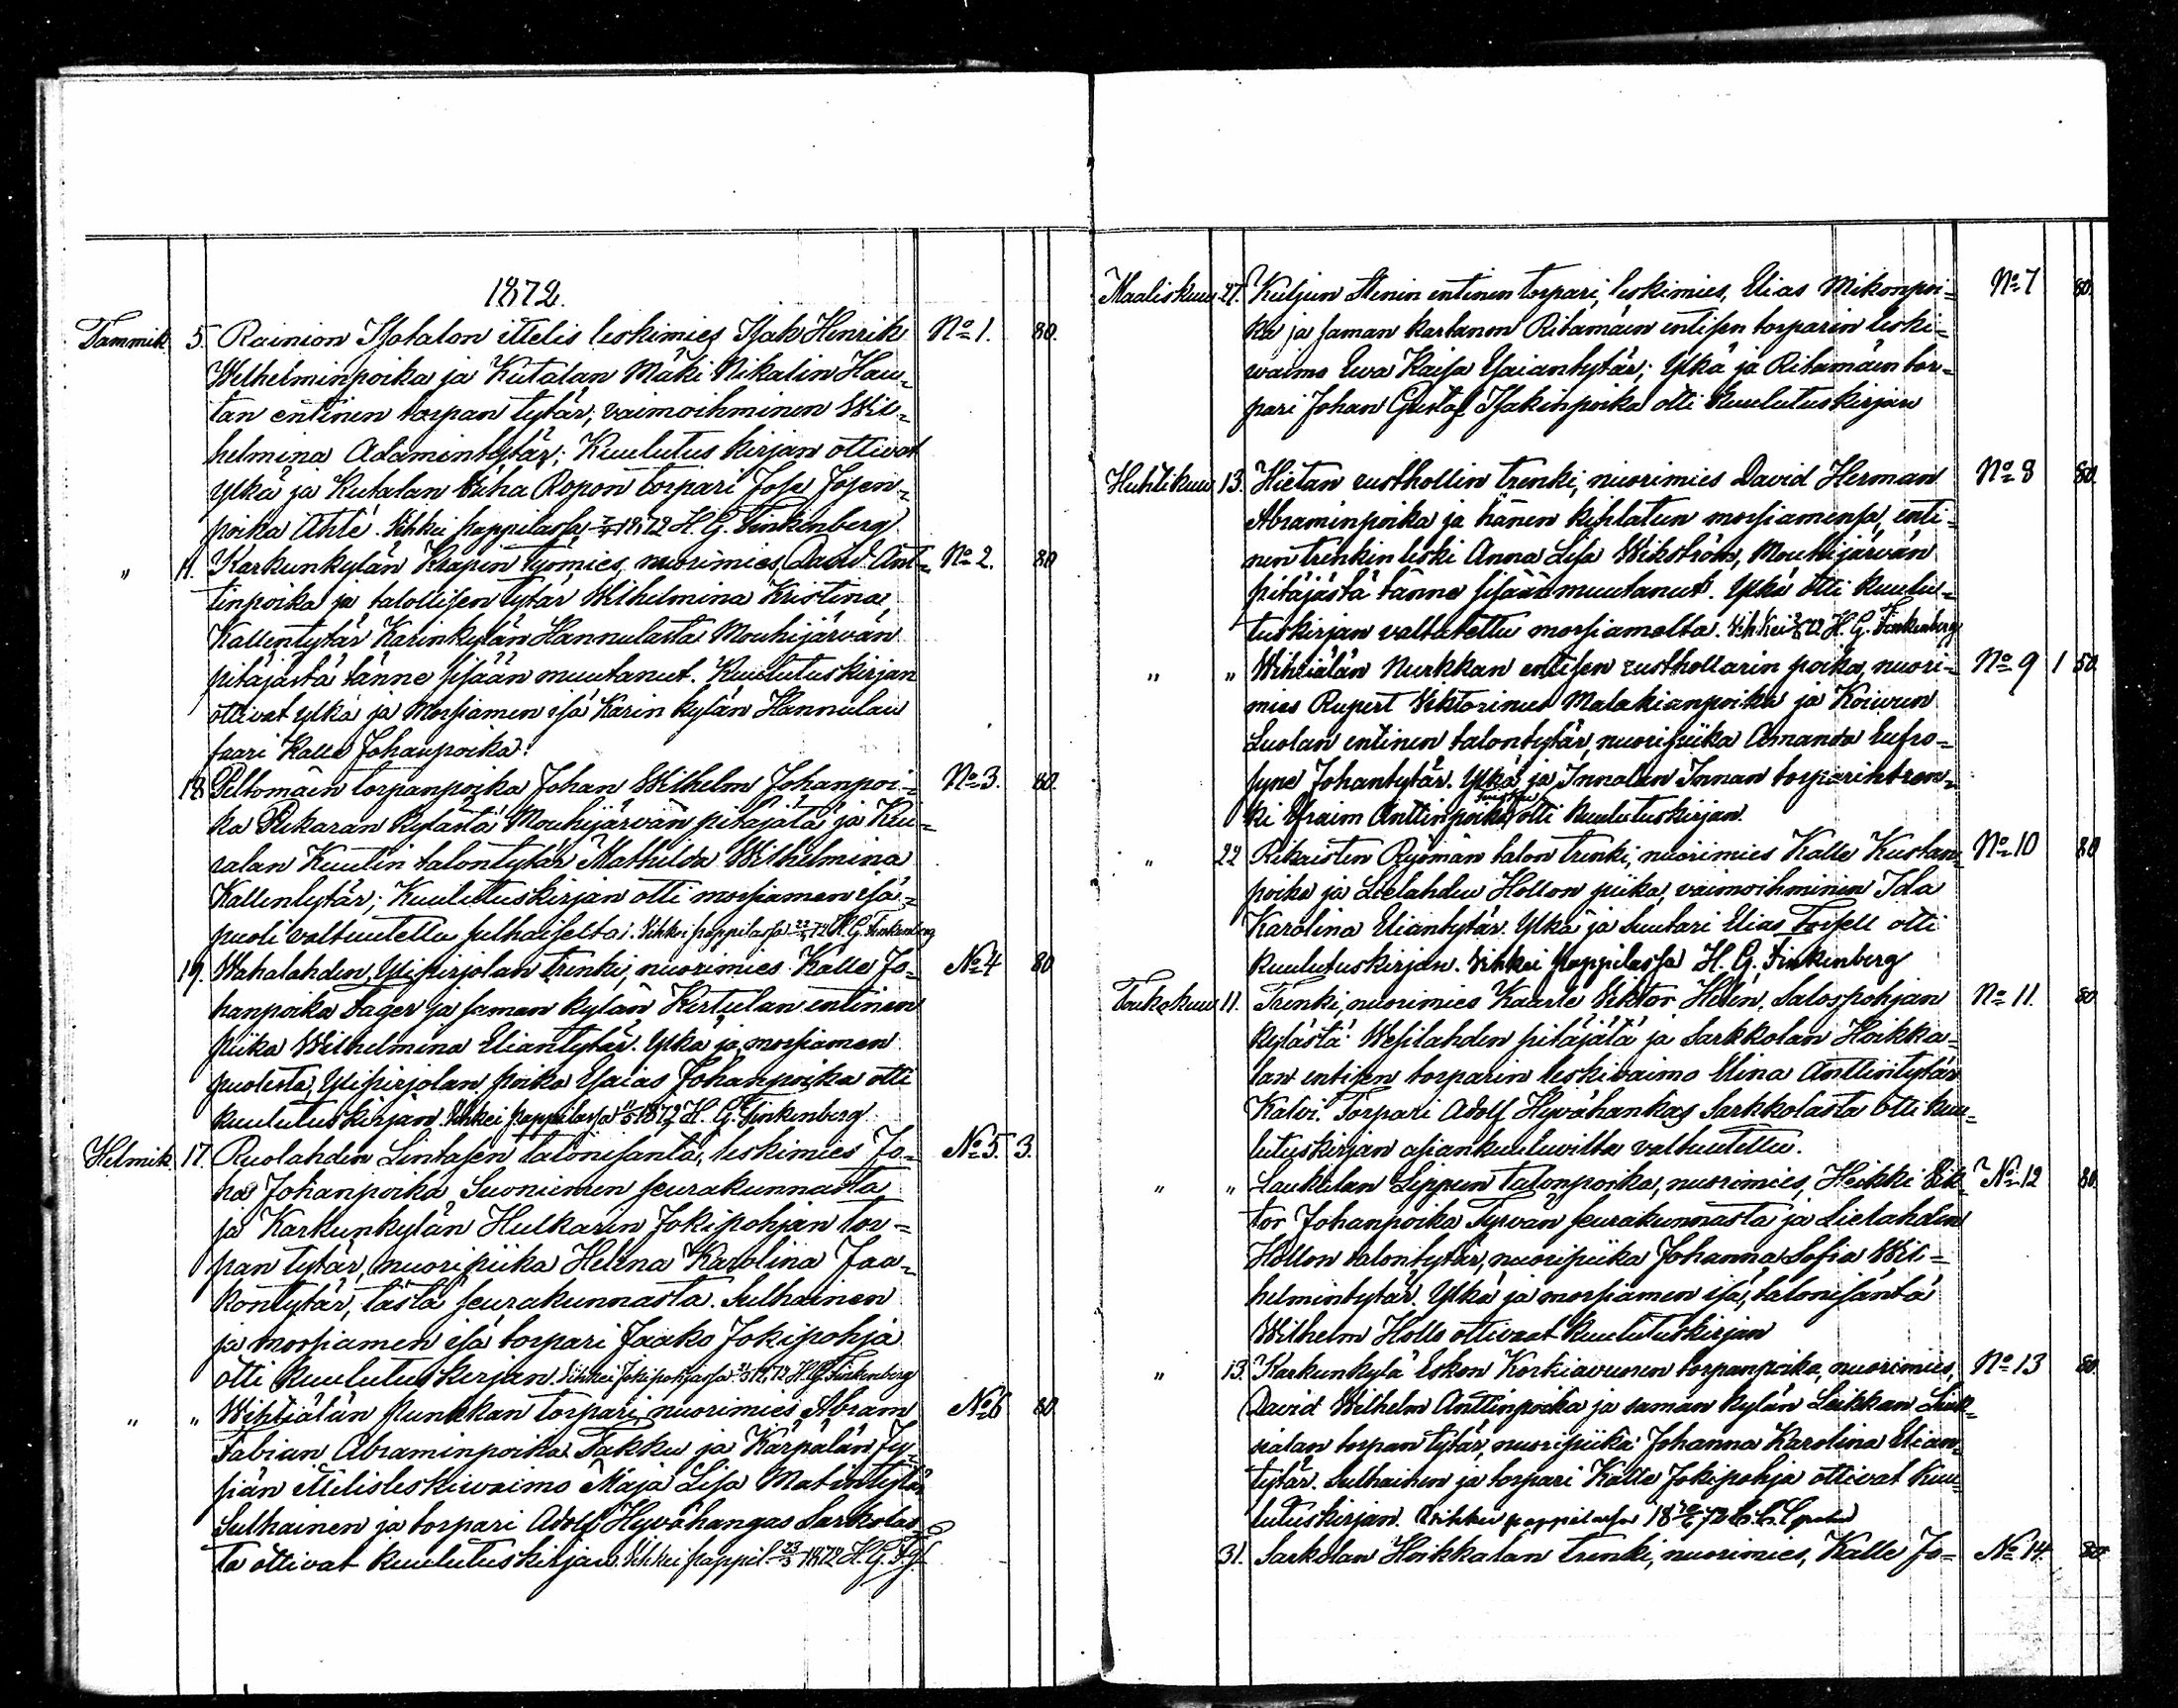 1872.
Tammik 5. Rainion Isotalon ittelis leskimies Isak Henrik No 1. 80.
Welhelminpoika ja Kutalan Mäki Nikalin Hau-
tan entinen torpan tytär, vaimoihminen Wil-
helmina Adamintytär; Kuulutus kirjan ottivat
Ylkä ja Kutalan Wiha Ropon torpari Jose Josen-
poika Ahle. Vihkei pappilassa 1872 H. G. Finkenberg
" 11. Karkunkylän Knapin työmies, nuorimies, David Ant- No 2. 80
tinpoika ja talollisen tytär Wilhelmina Kristina
Kallentytär Karinkylän Hannulasta Mouhijärvän
pitäjästä tänne sisään muutanut. Kuulutuskirjan
ottivat ylkä ja Morsiamen isä Karin kylän Hannulan
faari Kalle Johanpoika.
18. Peltomäen torpanpoika Johan Wilhelm Johanpoi- No 3. 80.
ka Pukaran kylästä Mouhijärvän pitäjätä ja Kiu-
ralan Kuutin talontytär Mathilda Wilhelmina
Kallentytär; Kuulutuskirjan otti morsiamen isä-
puoli valtuutettu sulhaiselta. Vihkei pappilassa 72 H. G. Finkenberg
19. Wahalahden, Ylipirjolan trenki, nuorimies Kalle Jo- No 4 80
hanpoika Fager ja saman kylän Kirtulan entinen
piika Wilhelmina Eliantytär. Ylkä ja morsiamen
puolesta Ylipirjolan poika Esaias Johanpoika otti
kuulutuskirjan Vihkei pappilassa 1872 H. G. Finkenberg
Helmik 17. Ruolahden Lintasen talonisäntä, leskimies Jo- No 5. 3.
ha Johanpoika Suoniemen seurakunnasta
ja Karkunkylän Hulkarin Jokipohjan tor-
pan tytär, nuoripiika Helena Karolina Jaa-
kontytär, tästä seurakunnasta. Sulhainen
ja morsiamen isä torpari Jaako Jokipohja
otti kuulutuskirjan. Vihkei Jokipohjassa 72 H. G. Finkenberg
" " Wihtiälän Punkkan torpari, nuorimies Abram No 6 80
Fabian Abraminpoika Takku ja Kärpälän Jy-
siän ittelisleskiwaimo Maja Lisa Matintytär
Sulhainen ja torpari Adolf Hyvähangas Sarkolas-
ta ottivat kuulutuskirjan. Vihkei pappil. 1872 H. G. Fg.
Maaliskuu 27. Kuljun Stenin entinen torpari, leskimies, Elias Mikonpoi- No 7 80.
ka ja saman kartanon Ritamäen entisen torparin leski-
vaimo Ewa Kaisa Esaiantytär; Ylkä ja Ritamäen tor-
pari Johan Gustaf Isakinpoika otti kuulutuskirjan
Huhtikuu 13. Hietan rusthollin trenki, nuorimies David Herman No 8 80.
Abraminpoika ja hänen kihlatun morsiamensa, enti-
nen trenkin leski Anna Lisa Wikström, Mouhijärvän
pitäjästä tänne sisään muutanut. Ylkä otti kuulu-
tuskirjan valtatettu morsiamelta. Vihkei 72 H. G. Finkenberg
" " Wihtiälän Nurkkan entisen rusthollarin poika, nuori- No 9 1 50.
mies Rupert Viktorinus Malakianpoika ja Koivun
Luolan entinen talontytär, nuoripiika Amanda Eufro-
syne Johantytär. Ylkä ja Innalan Innan torparintren-
ki Efraim Anttinpoika otti kuulutuskirjan.
" 22 Rikaisten Ryömän talon trenki, nuorimies Kalle Kustan- No 10 80
poika ja Lielahden Hollon piika, vaimoihminen Ida
Karolina Eliantytär. Ylkä ja Suutari Elias Forsell otti
kuulutuskirjan. Vihkei pappilassa H. G. Finkenberg
Toukokuu 11. Trenki, nuorimies Kaarle Viktor Helin, Salospohjan No 11. 80.
kylästä Wesilahden pitäjätä ja Sarkkolan Hoikka-
lan entisen torparin leskivaimo Elina Anttintytär
Kalvi. Torpari Adolf Hyvähankas Sarkkolasta otti kuu-
lutuskirjan asiankuuluvilta valtuutettu.
" " Laukulan Lippun Talonpoika, nuorimies, Heikki Vik- No 12 80.
tor Johanpoika Tyrvän seurakunnasta ja Lielahden
Hollon talontytär, nuoripiika Johanna Sofia Wil-
helmintytär. Ylkä ja morsiamen isä, talonisäntä
Wilhelm Hollo ottivaat kuulutuskirjan
" 13. Karkunkylä Eskon Korkiavuoren torpanpoika, nuorimies, No 13 80.
David Wilhelm Anttinpoika ja saman kylän Leikkan
torpan tytär, nuoripiika Johanna Karolina Elian-
tytär. Sulhainen ja torpari Kalle Jokipohja ottivat kuu-
lutuskirjan. Wihki pappilassa 18 72
31. Sarkolan Hoikkalan trenki, nuorimies, Kalle Jo- No 14. 80.